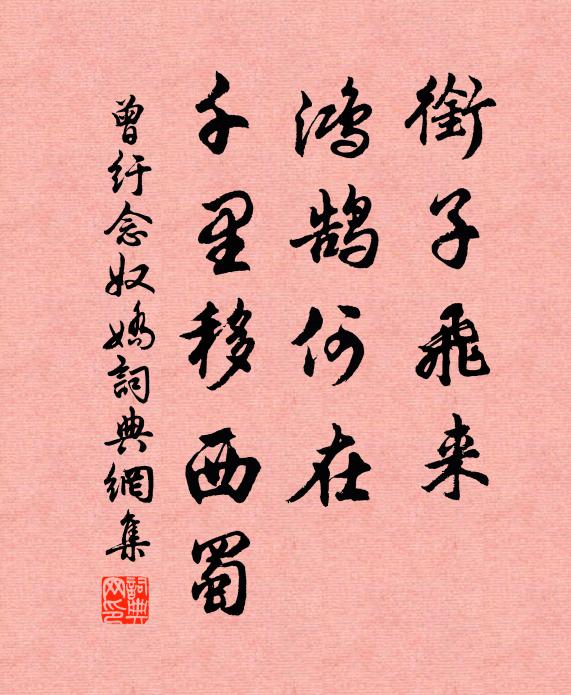 銜子飛来
鴻鵠何在
千里移西蜀
曾紆念奴嬌詞典網集
詞典網印